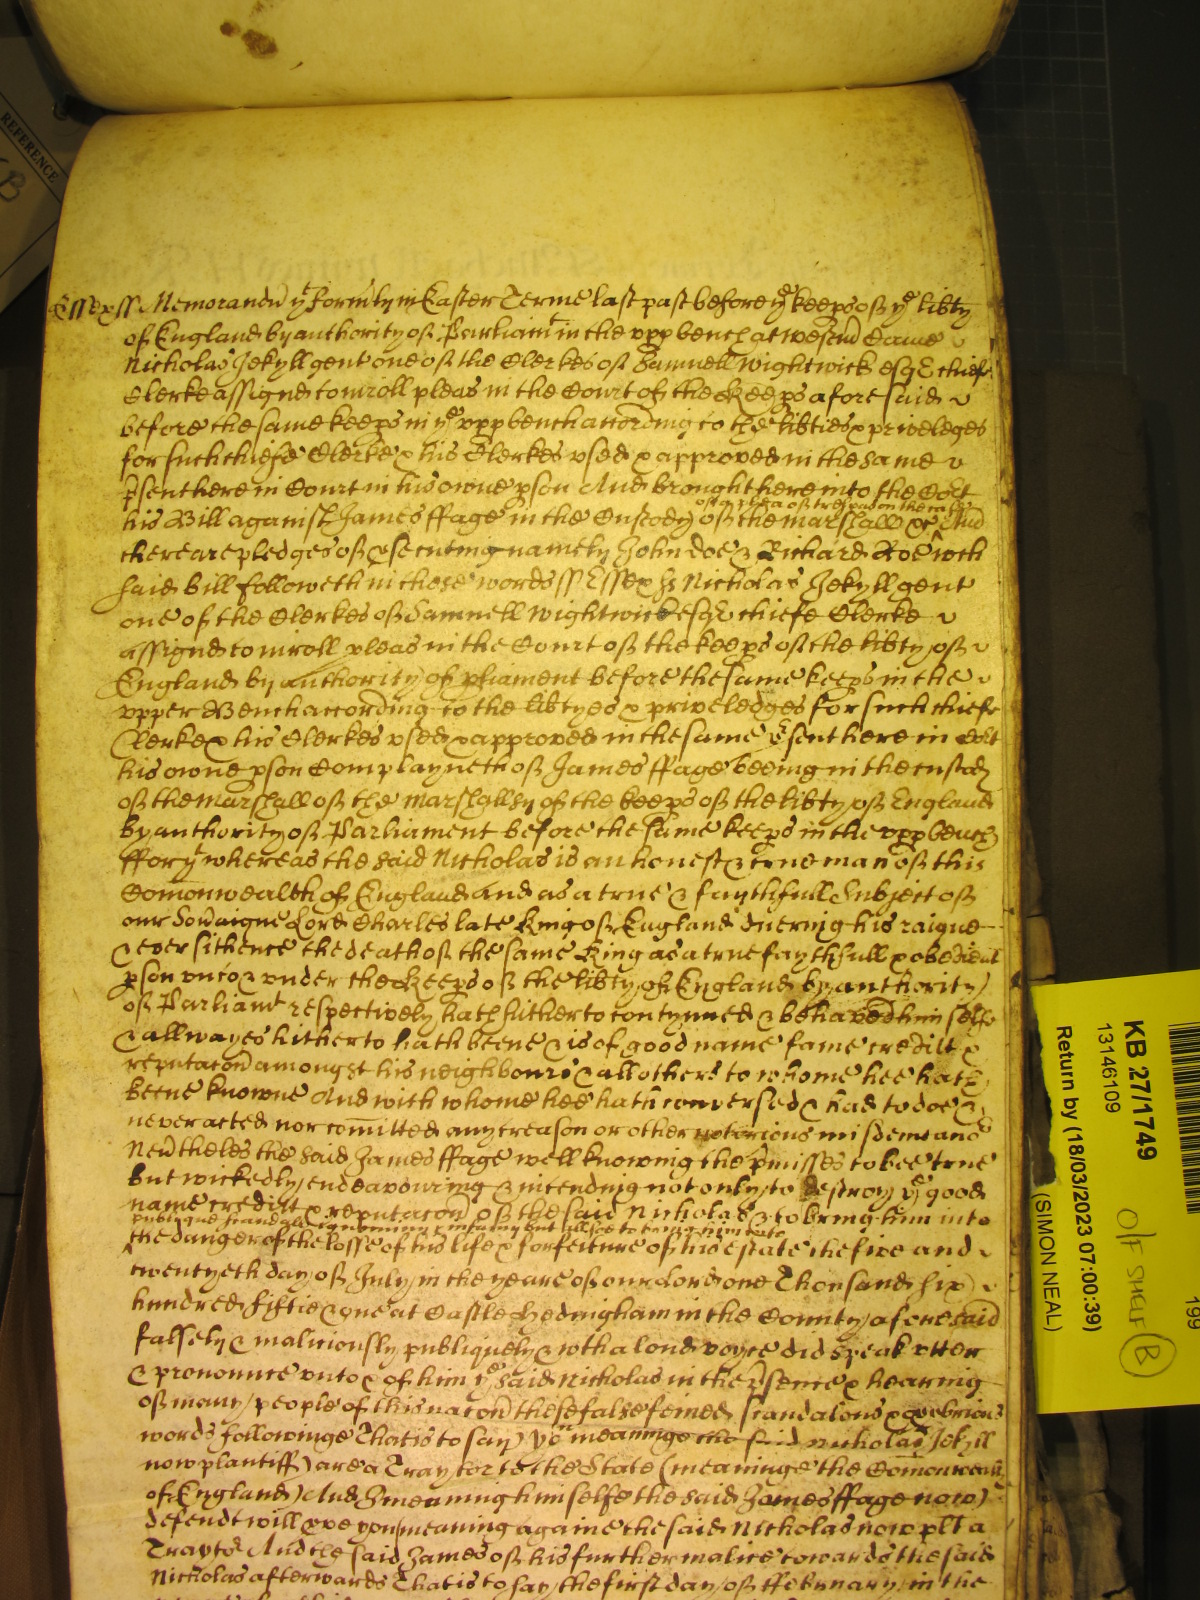 Essex ss Memorand yt formly in Easter Terme last past before ye keeps of ye libty
of England by authority of Parliamt in the upp bench at westm Came
Nicholas Jekyll gent one of the Clerkes of Samuell Wightwick esqr chiefe
Clerke assigned to inroll pleas in the Court of the Keeps aforesaid
before the same keeps in ye upp bench according to the libties & priveledges
for such chiefe Clerke & his Clerkes used & approved in the same
psent here in Court in his owne pson And brought here into the Cort
his Bill against James ffage in the Custody of the marshall &c And
of a plea of trespas on the case
there are pledges of psecuting namely John doe & Richard Roe wch
said Bill followeth in these words ss Essex ss Nicholas Jekyll gent
one of the Clerkes of Samuell Wightwick esqr chiefe Clerke
assigned to inroll pleas in the Court of the keeps of the libty of
England by authority of pliament before the same keeps in the
upper Bench according to the libtyes & priveledges for such chiefe
Clerke & his Clerkes used & approved in the same psent here in Cort
his owne pson Complayneth of James ffage beeing in the custody
of the marshall of the marshallsy of the keeps of the libty of England
by authority of Parliament before the same keeps in the upp bench
ffor yt whereas the said Nicholas is an honest & true man of this
Comonwealth of England and as a true & faythfull Subject of
our Soveraigne Lord Charles late King of England dureing his raigne
& ever sithence the death of the same King as a true faythfull & obedient
pson unto & under the Keeps of the libty of England by authority
of Parliamt respectively hath hitherto contynued & behaved himselfe
& allwayes hitherto hath beene & is of good name fame credilt &
reputacon amongst his neighbours & all others to whome hee hath
beene knowne And with whome hee hath conversed & had to doe &
never acted nor comitted any treason or other notorious misdemeanor
Nevtheles the said James ffage well knowing the pmisses to bee true
But wickedly endeavouring & intending not only to destroy ye good
name credilt & reputacon of the said Nicholas & to bring him into
publique scandall ignominy & infamy but allsoe to bring him into
the danger of the losse of his life & forfeiture of his estate the five and
twentyeth day of July in the yeare of our Lord one Thousand six
hundred fiftie & one at Castle Hedingham in the County aforesaid
falsely & maliciously publiquely & wth a loud voyce did speak utter
& pronounce unto & of him ye said Nicholas in the psence & hearing
of many people of this nacon these false feined scandalous & opprobrious
words followinge That is to say you meaninge the said Nicholas Jekyll
now plantiff) are a Traytor to the State (meaninge the Comonwealth
of England) And I meaning himselfe the said James ffage now)
defendt will prove you (meaning againe the said Nicholas now plt a
Traytor And the said James of his further malice towards the said
Nicholas afterwards That is to say the first day of ffebruary in the
REFERENCE
KB 27/1749
13146109
Return by (18/03/2023 07:00:39)
(SIMON NEAL)
O/F SHELF B
199